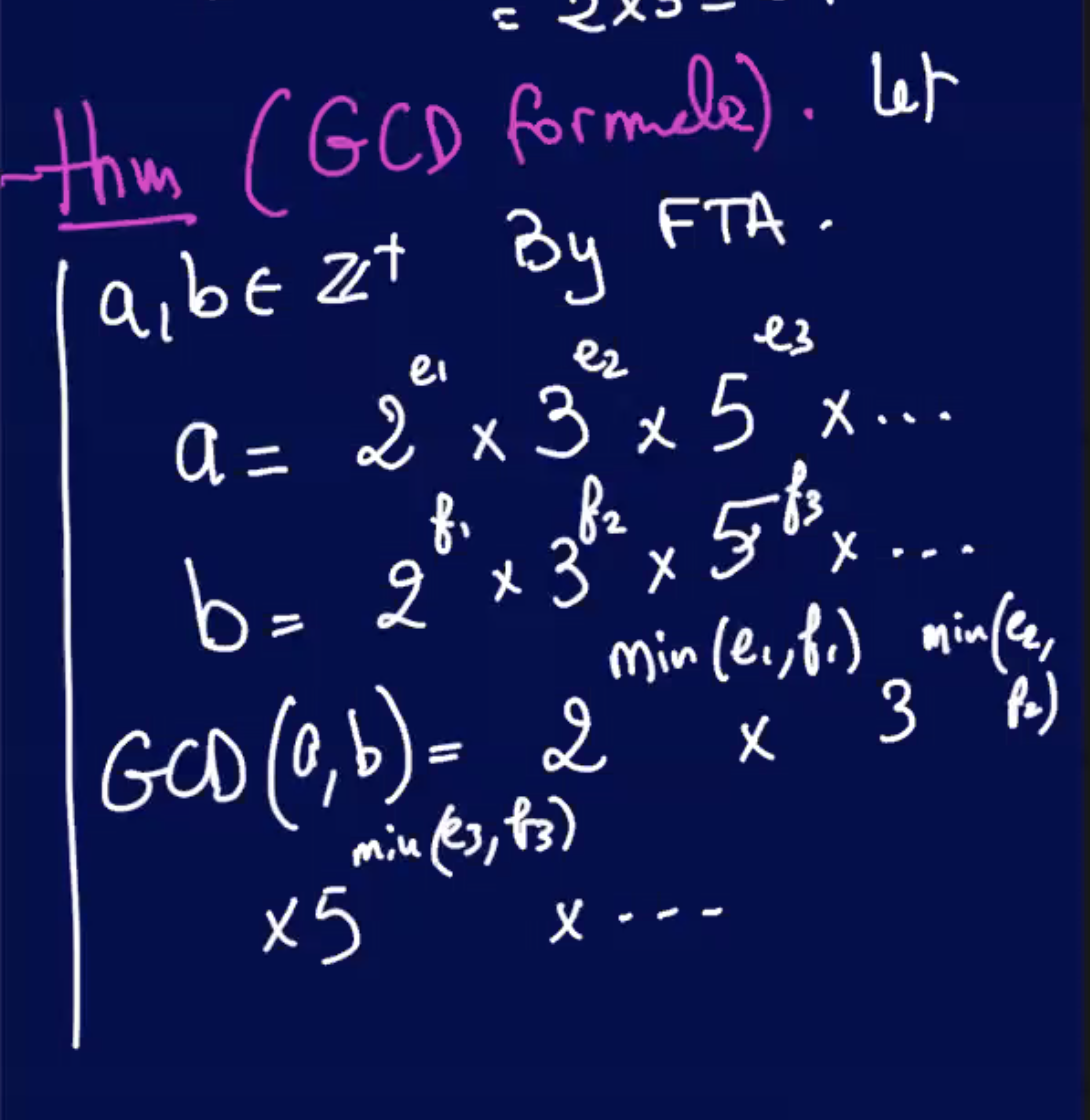 = 2x3
Thm (GCD formula). Let
a, b ∈ ℤ⁺ By FTA.
a = 2^e₁ x 3^e₂ x 5^e₃ x ...
b = 2^f₁ x 3^f₂ x 5^f₃ x ...
GCD(a,b) = 2^min(e₁,f₁) x 3^min(e₂,f₂)
x 5^min(e₃,f₃) x ---